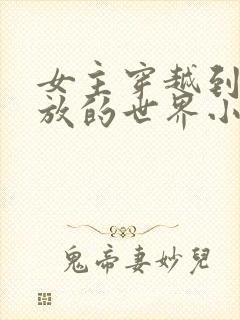 女主穿越到
放的世界小
鬼帝妻妙兒